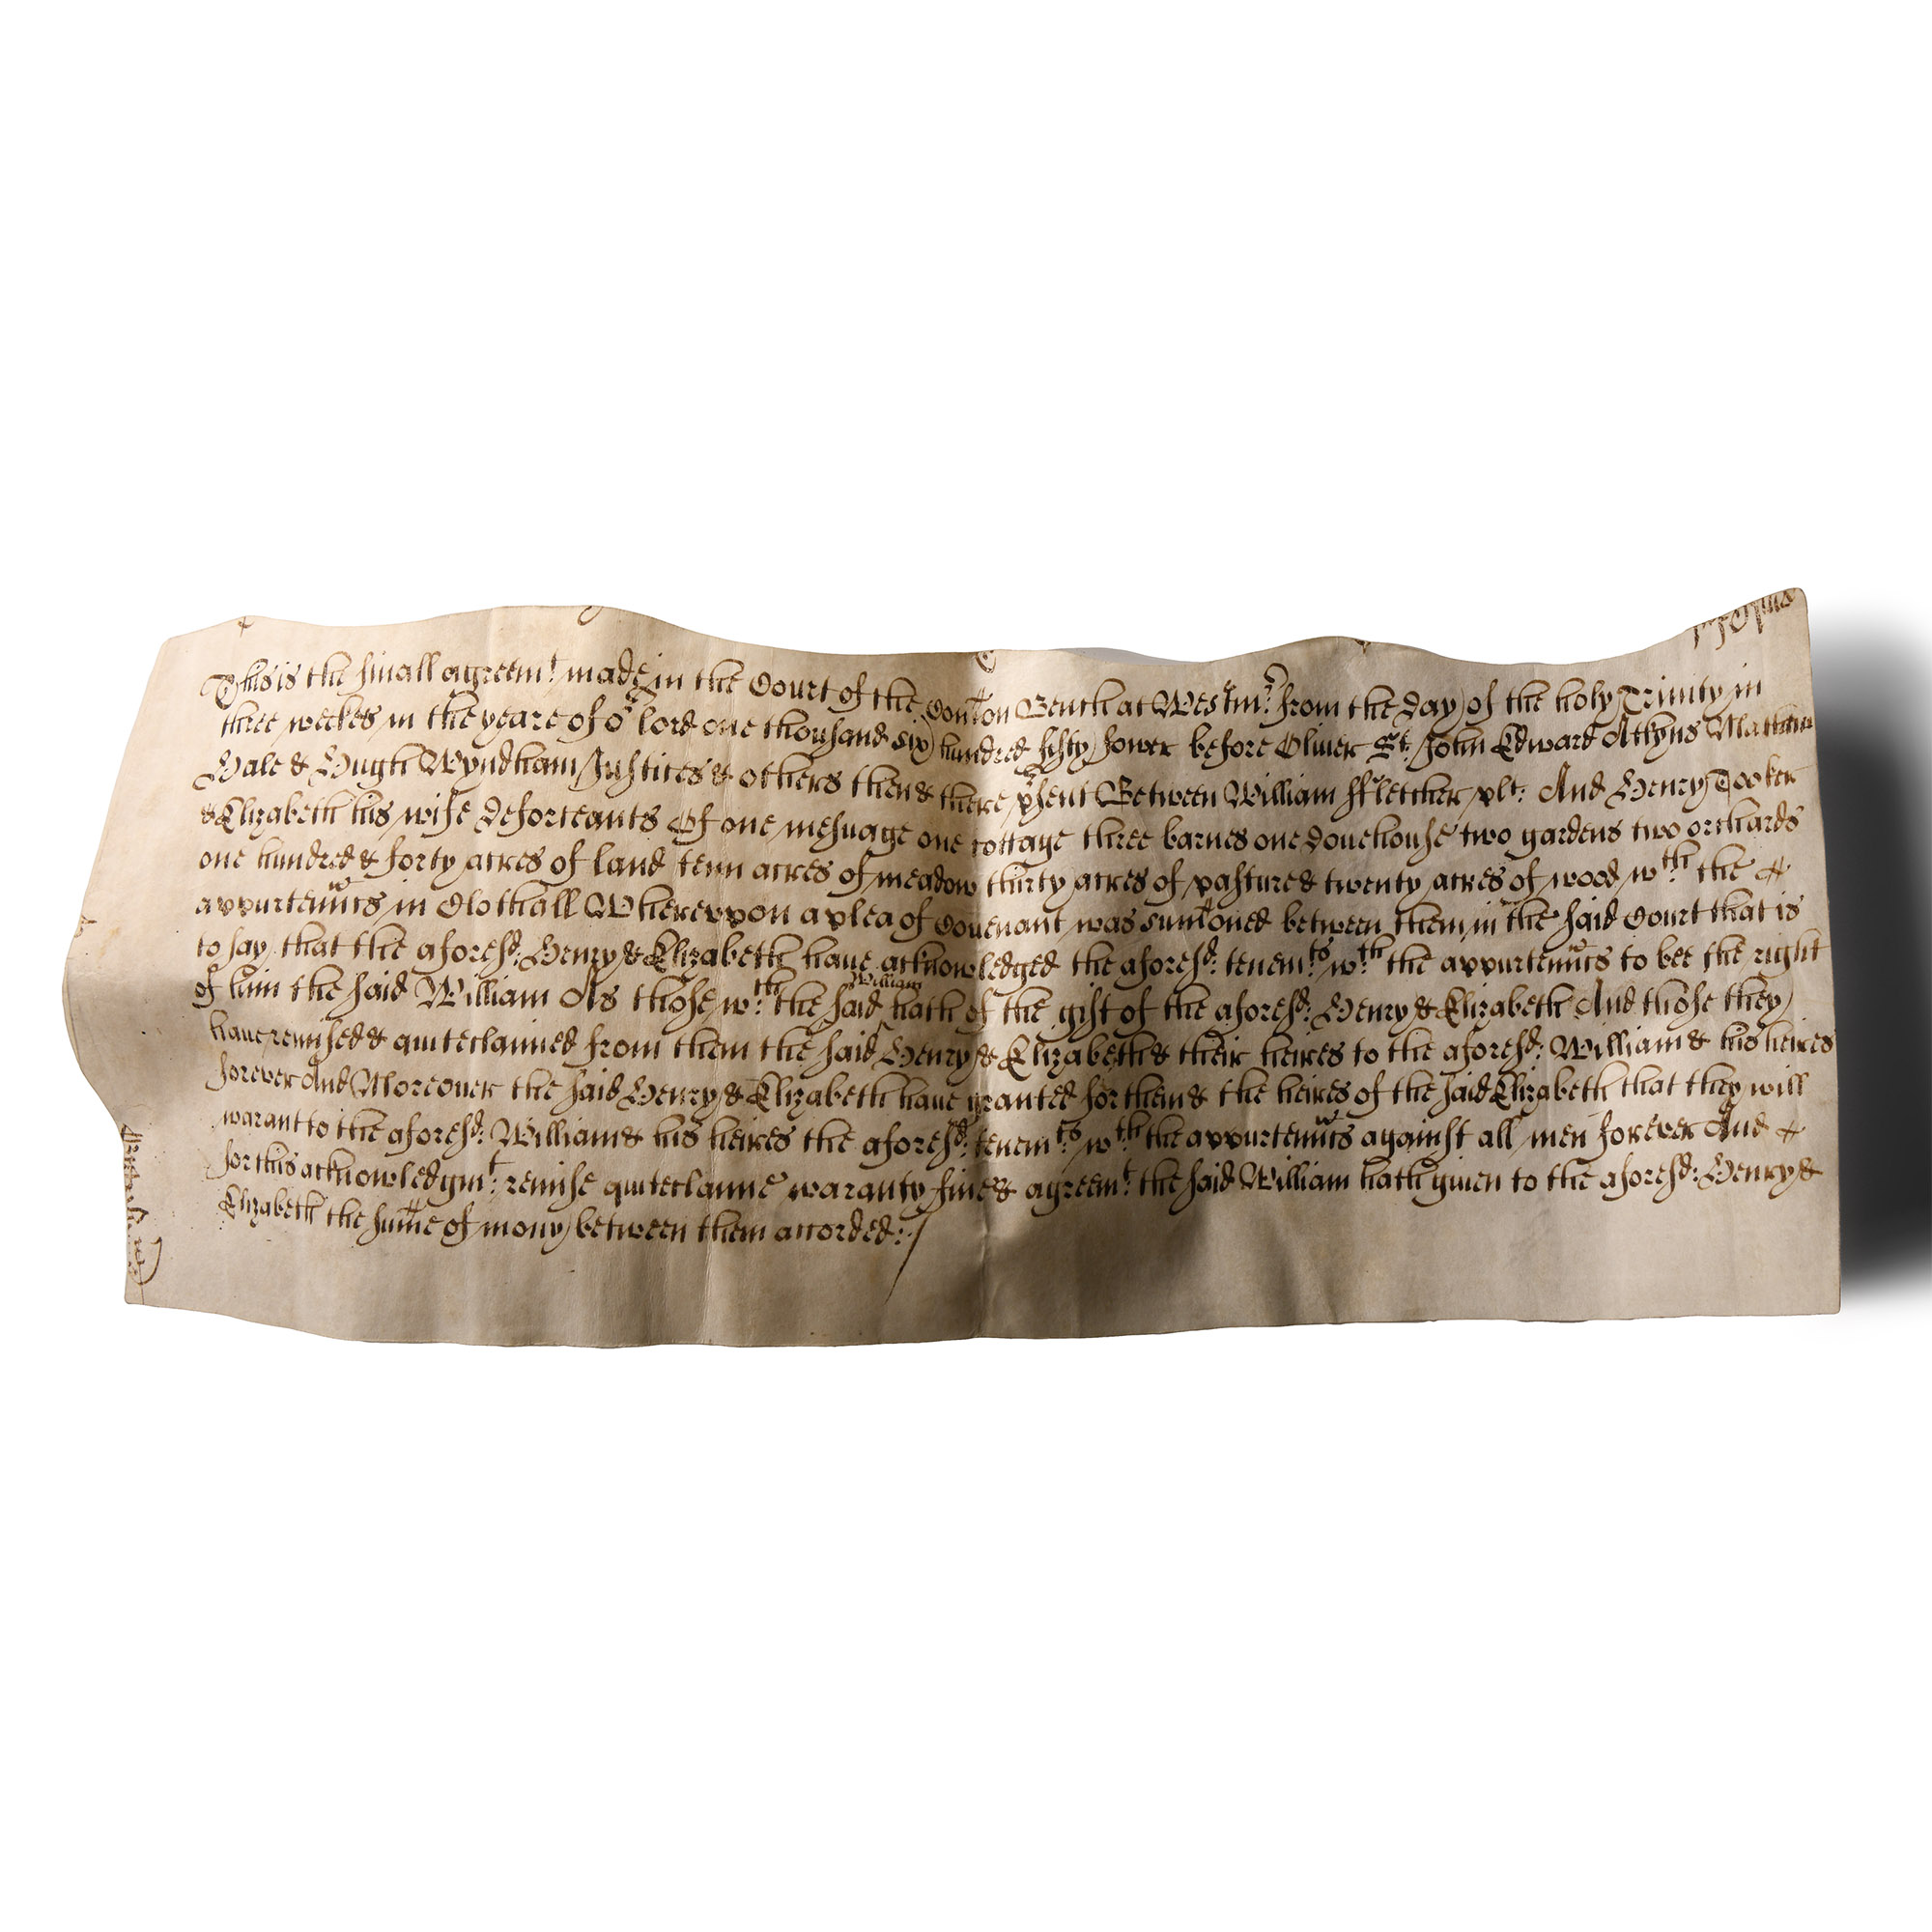 This is the finall agreemt. made in the Court of the Com̃on Bench at Westmr. from the day of the holy Trinity in
three weekes in the yeare of or lord one thousand six hundred fifty fower before Oliver St. John Edward Atkyns Mathew
Hale & Hugh Wyndham Justices & others then & there p̃sent Between William ffletcher plt: And Henry Tooker
& Elizabeth his wife deforceants Of one mesuage one cottage three barnes one dovehouse two gardens two orchards
one hundred & forty acres of land tenn acres of meadow thirty acres of pasture & twenty acres of wood wth. the
appurtenñcs in Clothall Whereuppon a plea of Covenant was sum̃oned between them in the said Court that is
to say that the aforesd: Henry & Elizabeth have acknowledged the aforesd: tenemts. wth. the appurtenñcs to bee the right
of him the said William As those wch. the said William hath of the gift of the aforesd: Henry & Elizabeth And those they
have remised & quiteclaimed from them the said Henry & Elizabeth & their heires to the aforesd: William & his heires
forever And Moreover the said Henry & Elizabeth have granted for them & the heires of the said Elizabeth that they will
warant to the aforesd: William & his heires the aforesd: tenemts. wth. the appurtenñcs against all men forever And
for this acknowledgmt: remise quiteclaime waranty fine & agreemt. the said William hath given to the aforesd: Henry &
Elizabeth the sum̃e of mony between them accorded: